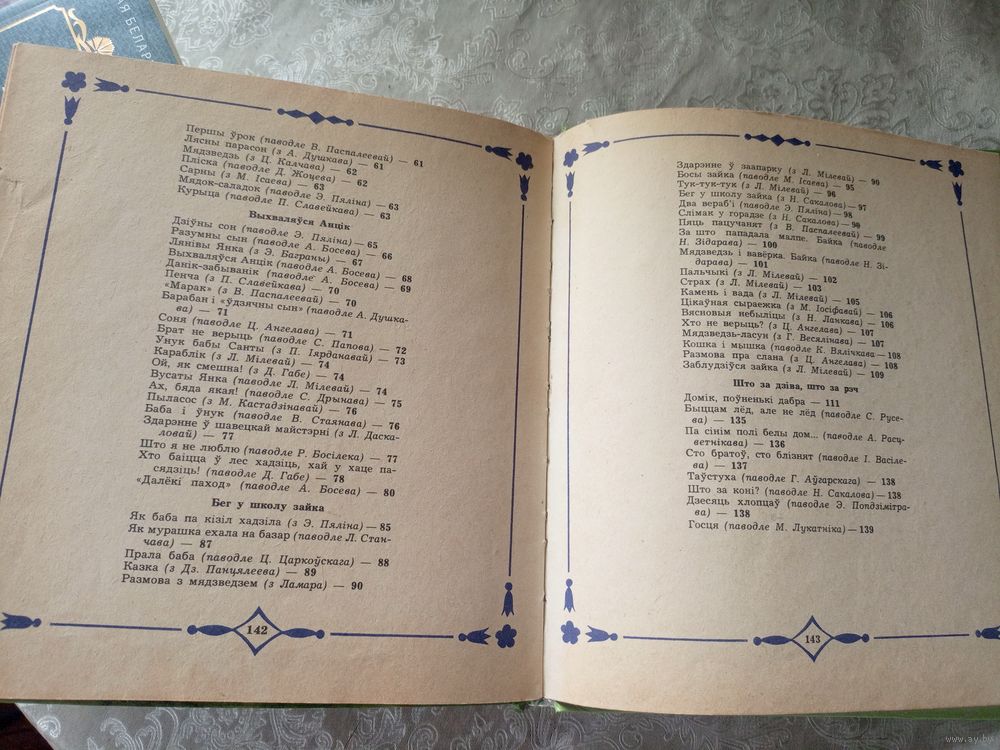 АЯ БЕЛАР
Першы ўрок (паводле В. Паспалеевай) — 61
Лясны парасон (з А. Душкава) — 61
Мядзведзь (з Ц. Калчава) — 62
Пліска (паводле Д. Жоцева) — 62
Сарны (з М. Ісаева) — 63
Мядок-саладок (паводле Э. Пяліна) — 63
Курыца (паводле П. Славейкава) — 63
Выхваляўся Анцік
Дзіўны сон (паводле Э. Пяліна) — 65
Разумны сын (паводле А. Босева) — 66
Лянівы Янка (з Э. Баграны) — 67
Выхваляўся Анцік (паводле А. Босева) — 68
Данік-забыванік (паводле А. Босева) — 69
Пенча (з П. Славейкава) — 70
«Марак» (з В. Паспалеевай) — 70
Барабан і «ўдзячны сын» (паводле А. Душка-
ва) — 71
Соня (паводле Ц. Ангелава) — 71
Брат не верыць (паводле С. Папова) — 72
Унук бабы Санты (з П. Іярданавай) — 73
Караблік (з Л. Мілевай) — 74
Ой, як смешна! (з Д. Габе) — 74
Вусаты Янка (паводле Л. Мілевай) — 74
Ах, бяда якая! (паводле С. Дрынава) — 75
Пыласос (з М. Кастадзінавай) — 76
Баба і ўнук (паводле В. Стаянава) — 76
Здарэнне ў шавецкай майстэрні (з Л. Даска-
ловай) — 77
Што я не люблю (паводле Р. Босілека) — 77
Хто баіцца ў лес хадзіць, хай у хаце па-
сядзіць! (паводле Д. Габе) — 78
«Далёкі паход» (паводле А. Босева) — 80
Бег у школу зайка
Як баба па кізіл хадзіла (з Э. Пяліна) — 85
Як мурашка ехала на базар (паводле Л. Стан-
чава) — 87
Прала баба (паводле Ц. Царкоўскага) — 88
Казка (з Дз. Панцялеева) — 89
Размова з мядзведзем (з Ламара) — 90
142
Здарэнне ў заапарку (з Л. Мілевай) — 90
Босы зайка (паводле М. Ісаева) — 95
Тук-тук-тук (з Л. Мілевай) — 96
Бег у школу зайка (з Н. Сакалова) — 97
Два вераб'і (паводле Э. Пяліна) — 98
Слімак у горадзе (з Н. Сакалова) — 90
Пяць пацучанят (з В. Паспалеевай) — 99
За што пападала малпе. Байка (паводле
Н. Зідарава) — 100
Мядзведзь і вавёрка. Байка (паводле Н. Зі-
дарава) — 101
Пальчыкі (з Л. Мілевай) — 102
Страх (з Л. Мілевай) — 103
Камень і вада (з Л. Мілевай) — 105
Цікаўная сыраежка (з М. Іосіфавай) — 106
Вясновыя небыліцы (з Н. Ланкава) — 106
Хто не верыць? (з Ц. Ангелава) — 107
Мядзведзь-ласун (з Г. Весялінава) — 107
Кошка і мышка (паводле К. Вялічкава — 108
Размова пра слана (з Ц. Ангелава) — 108
Заблудзіўся зайка (з Л. Мілевай) — 109
Што за дзіва, што за рэч
Домік, поўненькі дабра — 111
Быццам лёд, але не лёд (паводле С. Русе-
ва) — 135
Па сінім полі белы дом... (паводле А. Расц-
ветнікава) — 136
Сто братоў, сто блізнят (паводле І. Васіле-
ва) — 137
Таўстуха (паводле Г. Аўгарскага) — 138
Што за коні? (паводле Н. Сакалова) — 138
Дзесяць хлопцаў (паводле Э. Попдзімітра-
ва) — 138
Госця (паводле М. Лукатніка) — 139
143
www.ay.by